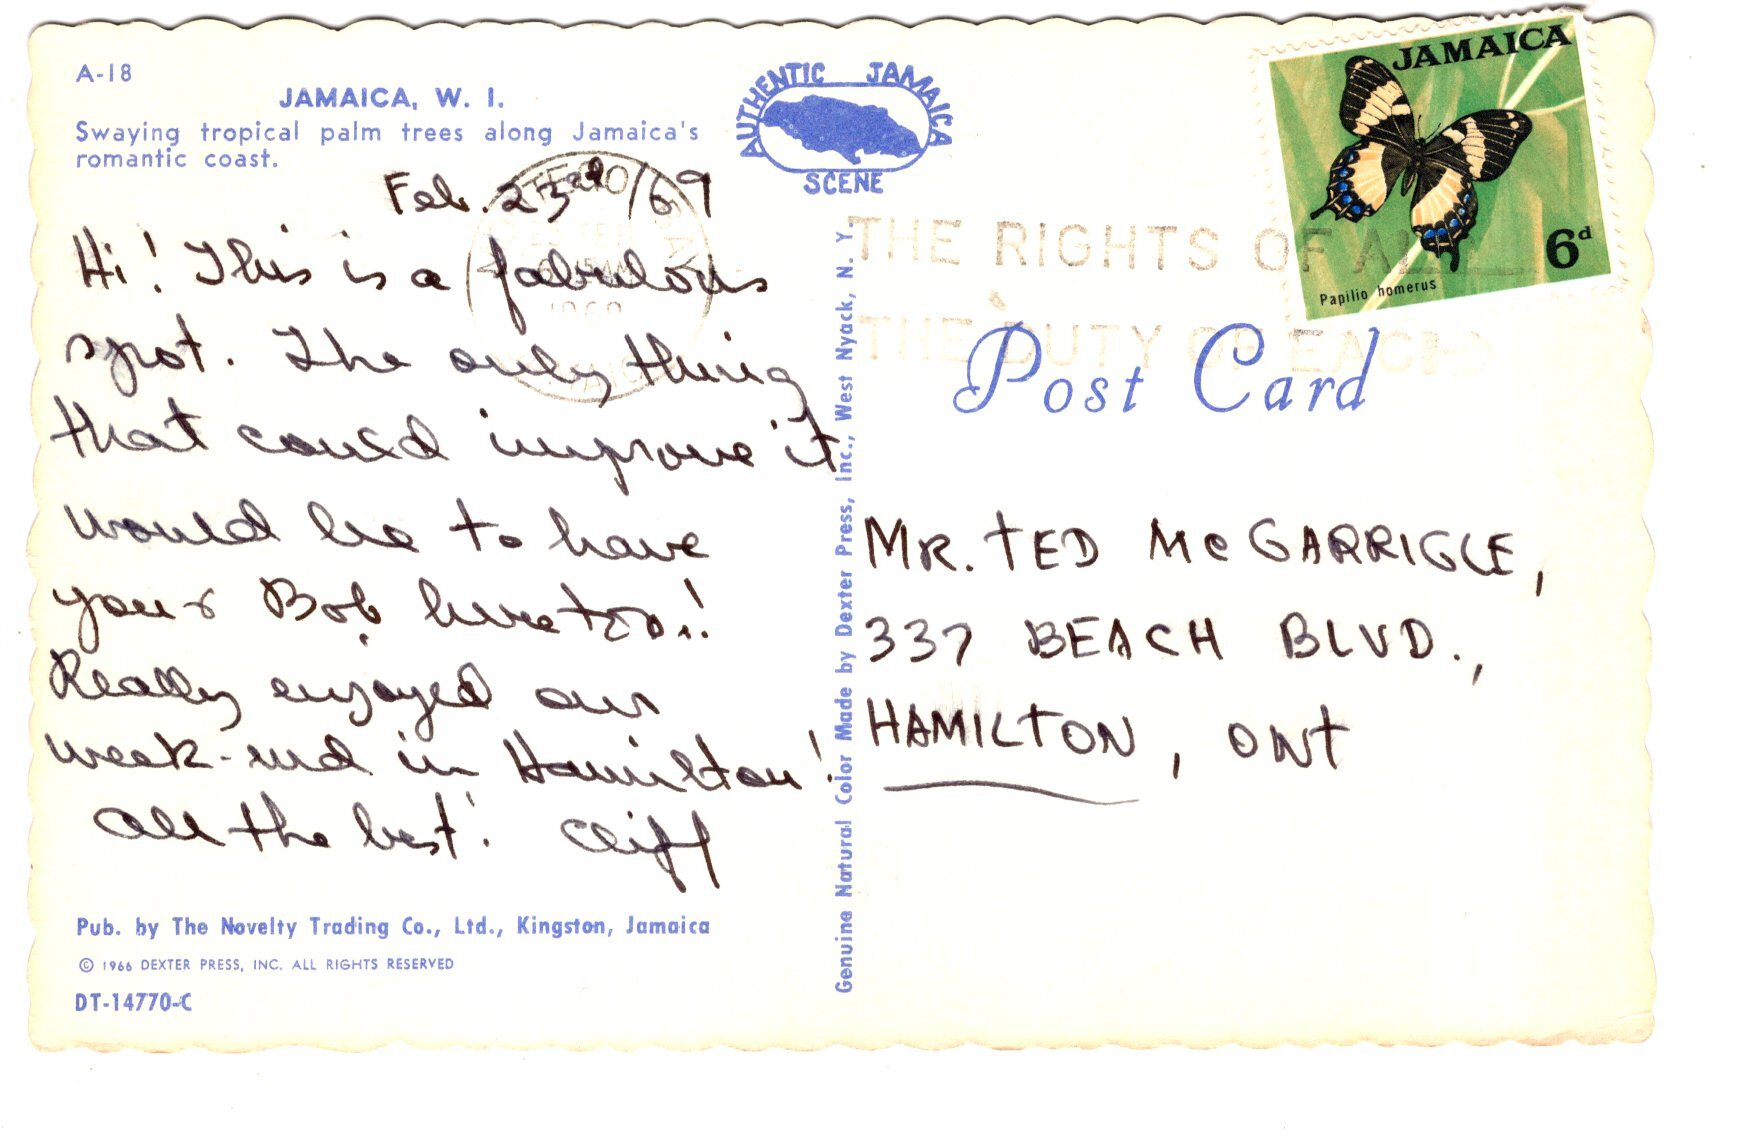 A-18
JAMAICA, W. I.
Swaying tropical palm trees along Jamaica's
romantic coast.
Feb. 23rd/69
Hi! This is a fabulous
spot. The only thing
that could improve it
would be to have
your Bob here too!!
Really enjoyed our
week-end in Hamilton!
All the best! Cliff
Pub. by The Novelty Trading Co., Ltd., Kingston, Jamaica
© 1966 DEXTER PRESS, INC. ALL RIGHTS RESERVED
DT-14770-C
AUTHENTIC JAMAICA
SCENE
Genuine Natural Color Made by Dexter Press, Inc., West Nyack, N. Y.
THE RIGHTS OF ALL
THE DUTY OF EACH
JAMAICA
6d
Papilio homerus
Post Card
MR. TED McGARRIGLE,
337 BEACH BLVD.,
HAMILTON, ONT